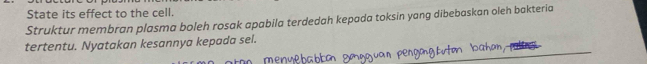 State its effect to the cell.
Struktur membran plasma boleh rosak apabila terdedah kepada toksin yang dibebaskan oleh bakteria
tertentu. Nyatakan kesannya kepada sel.
akan menyebabkan gangguan pengangkutan bahan,